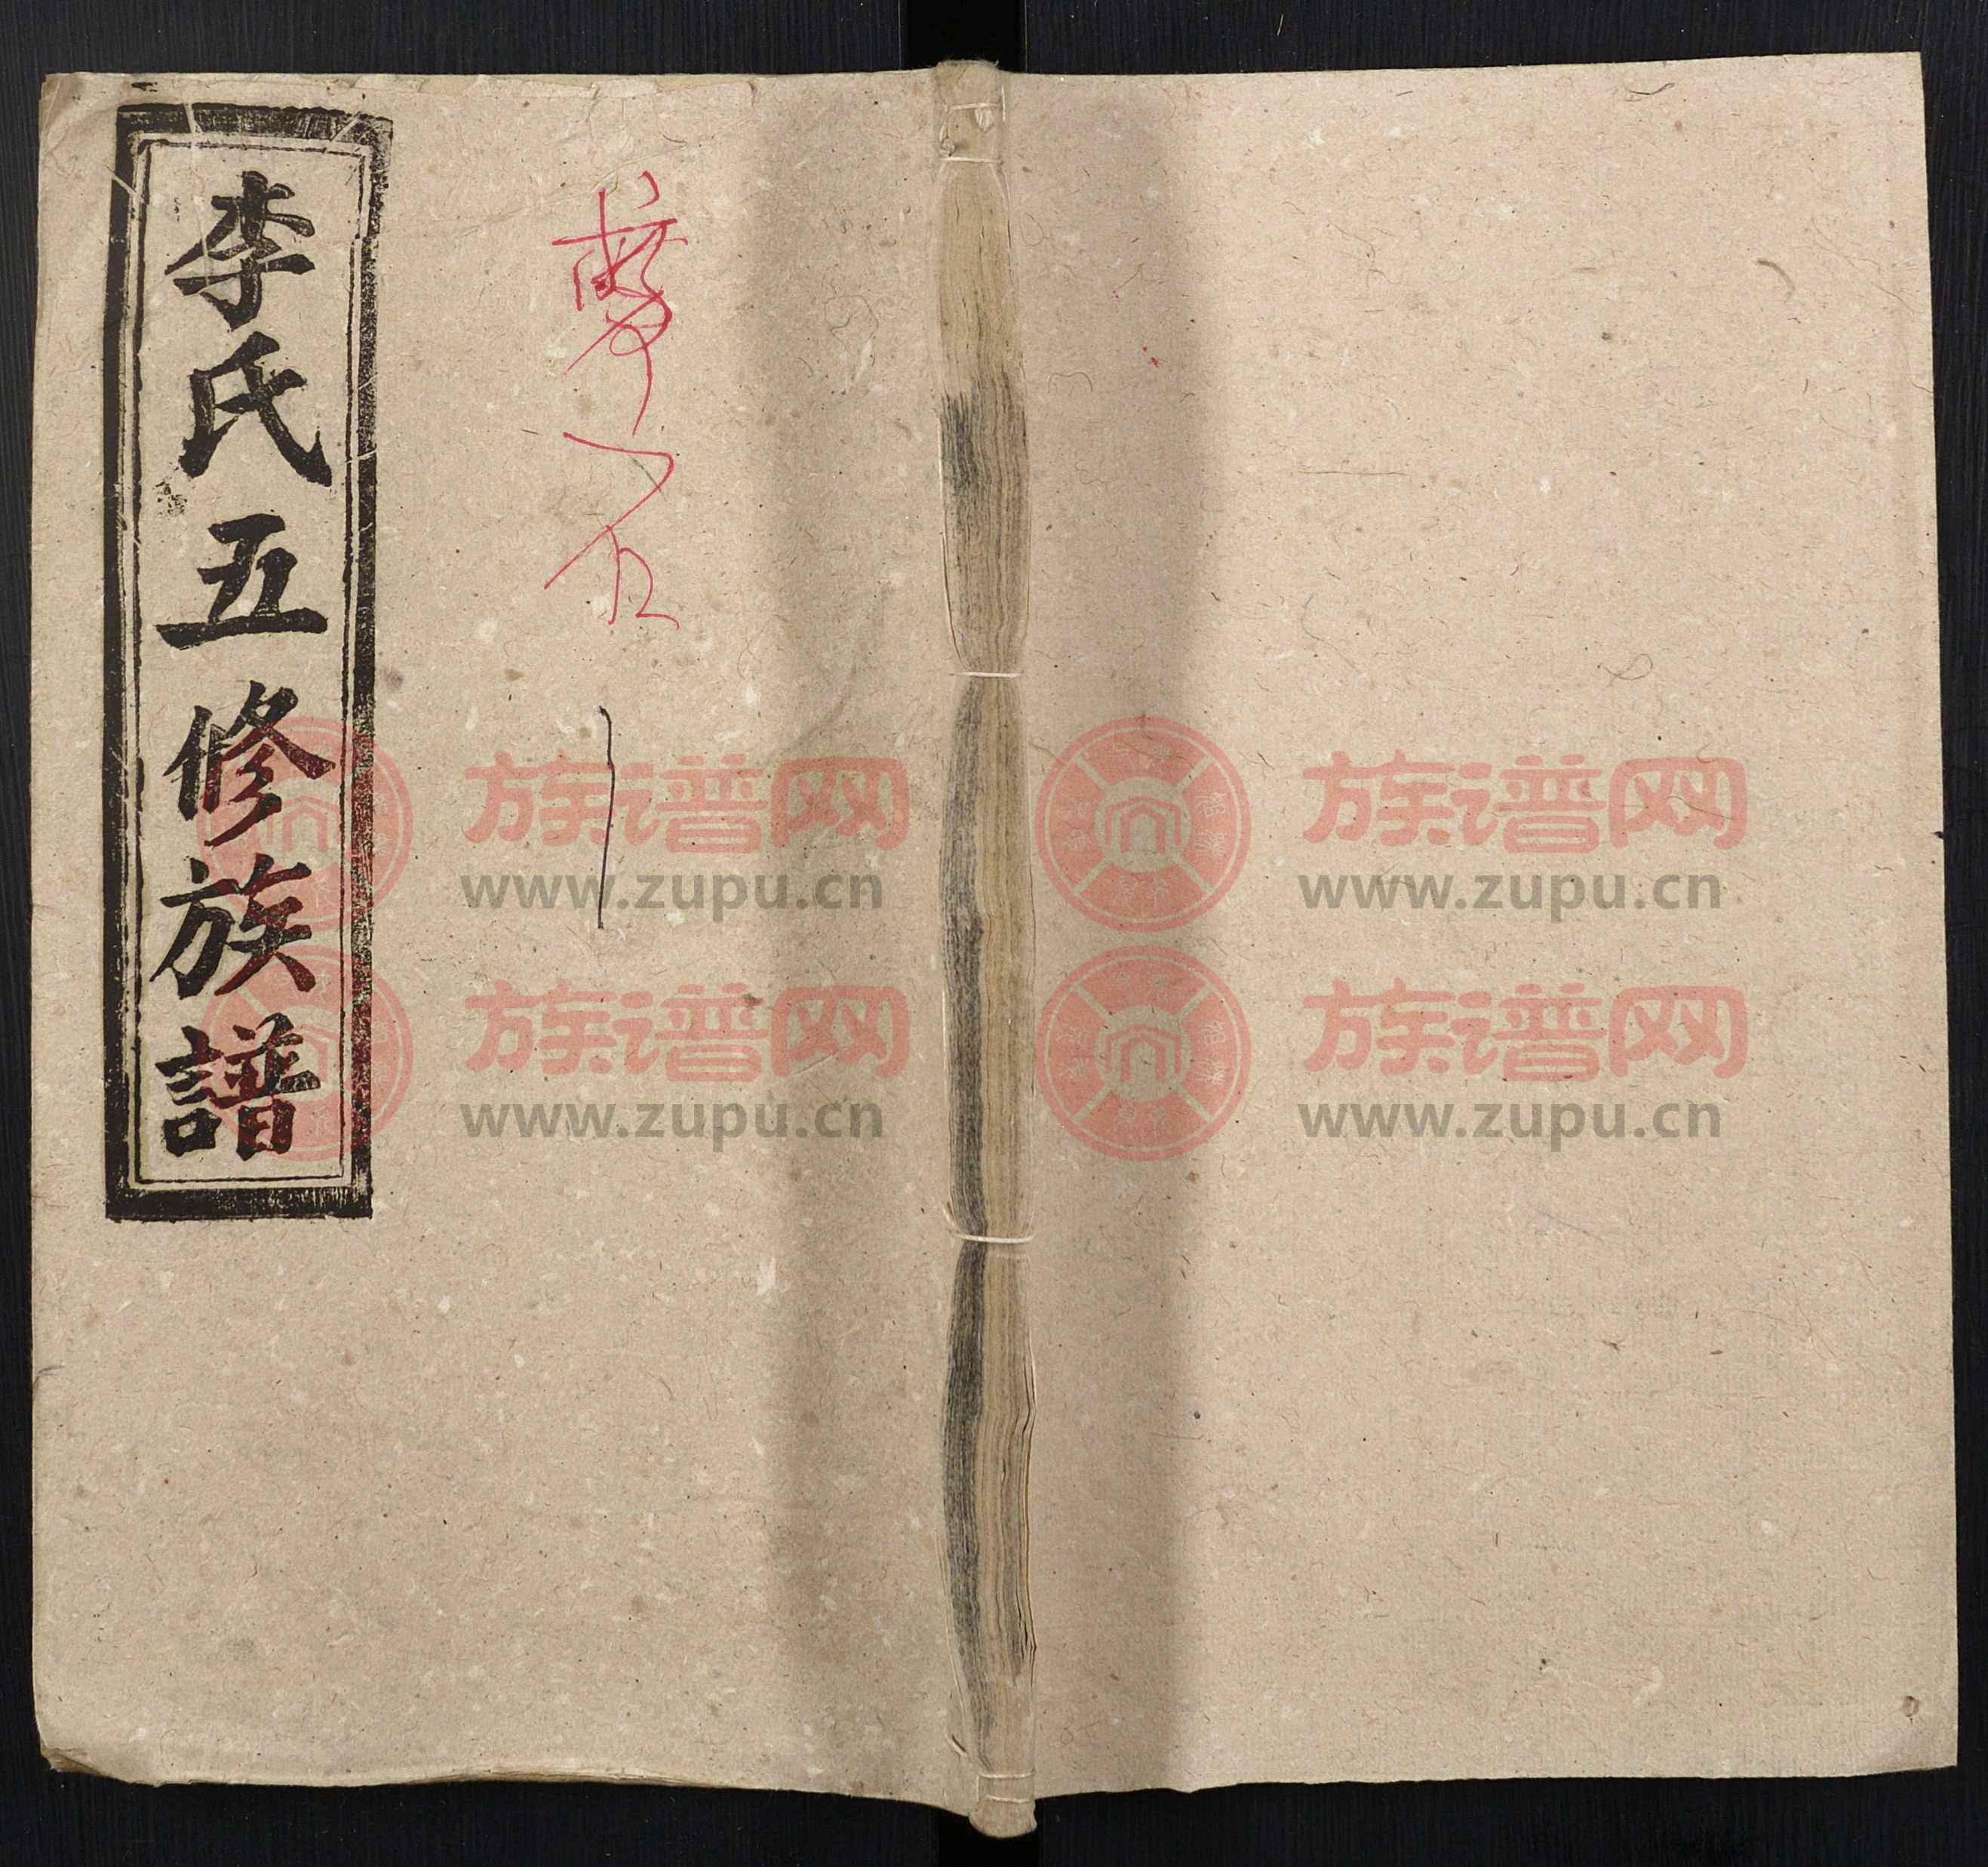 李氏五修族譜
族谱网
www.zupu.cn
族谱网
www.zupu.cn
族谱网
www.zupu.cn
族谱网
www.zupu.cn